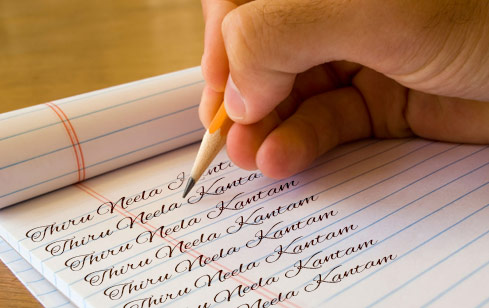 Thiru Neela Kanta
Thiru Neela Kantam
Thiru Neela Kantam
Thiru Neela Kantam
Thiru Neela Kantam
Thiru Neela Kantam
Neela Kantam
Kantam